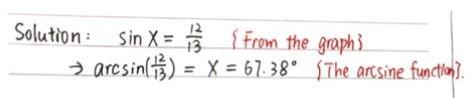 Solution: sin X = 12/13 {From the graph}
→ arcsin(12/13) = X = 67.38° {The arcsine function}.